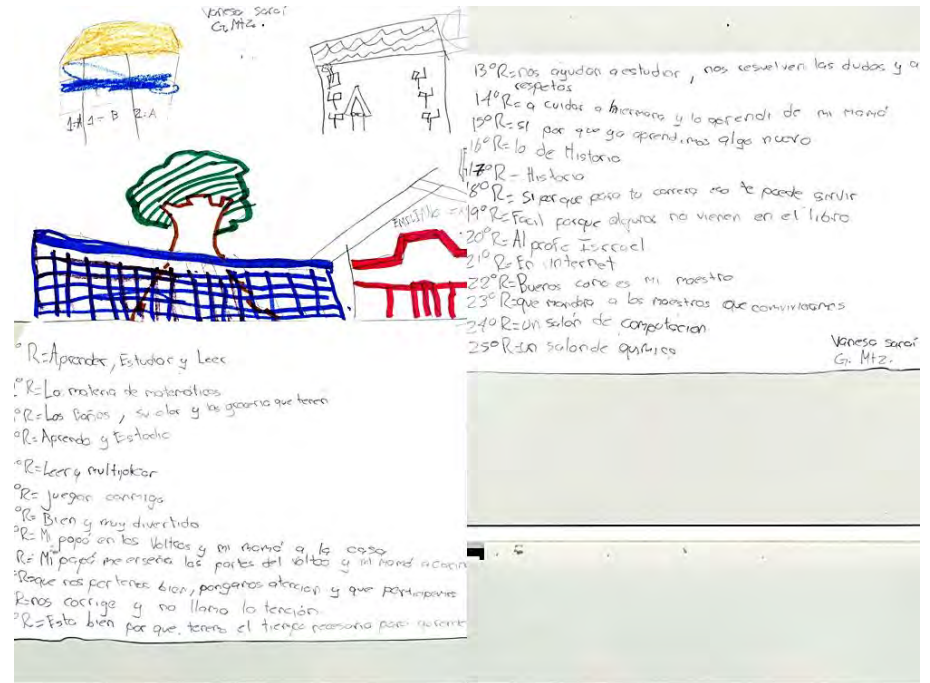 Vanesa Saraí
G. Mtz.
1=A 1=B 2=A
R=Aprender, Estudiar y Leer
R=La materia de matemáticas
R=Los Baños, su olor y las que tenen
R=Aprendo y Estudio
R=Leer y multiplicar
R= juegan conmigo
R= Bien y muy divertido
R= Mi papá en los Volteos y mi mamá a la casa
R= Mi papá me enseña las partes del volteo y mi mamá a
R=que nos portemos bien, pongamos atención y que
R=nos corrige y no llama la tención
R=Esta bien por que, tenems el tiempo necesario para
13º R=nos ayudan a estudiar, nos resuelven las dudas y a
respetos
14º R= a cuidar a hermana y lo aprendi de mi mamá
15º R=si por que ya aprendimos algo nuevo
16º R= la de Historia
17º R= Historia
18º R= SI porque para tu carrera eso te puede servir
19º R=Facil porque algunas no vienen en el libro
20º R= Al profe Isrrael
21º R= En internet
22º R=Buenos como es mi maestro
23º R=que mandra a los maestros que
24º R= un salón de computacion
25º R=un salon de quimica
Vanesa Saraí
G. Mtz.